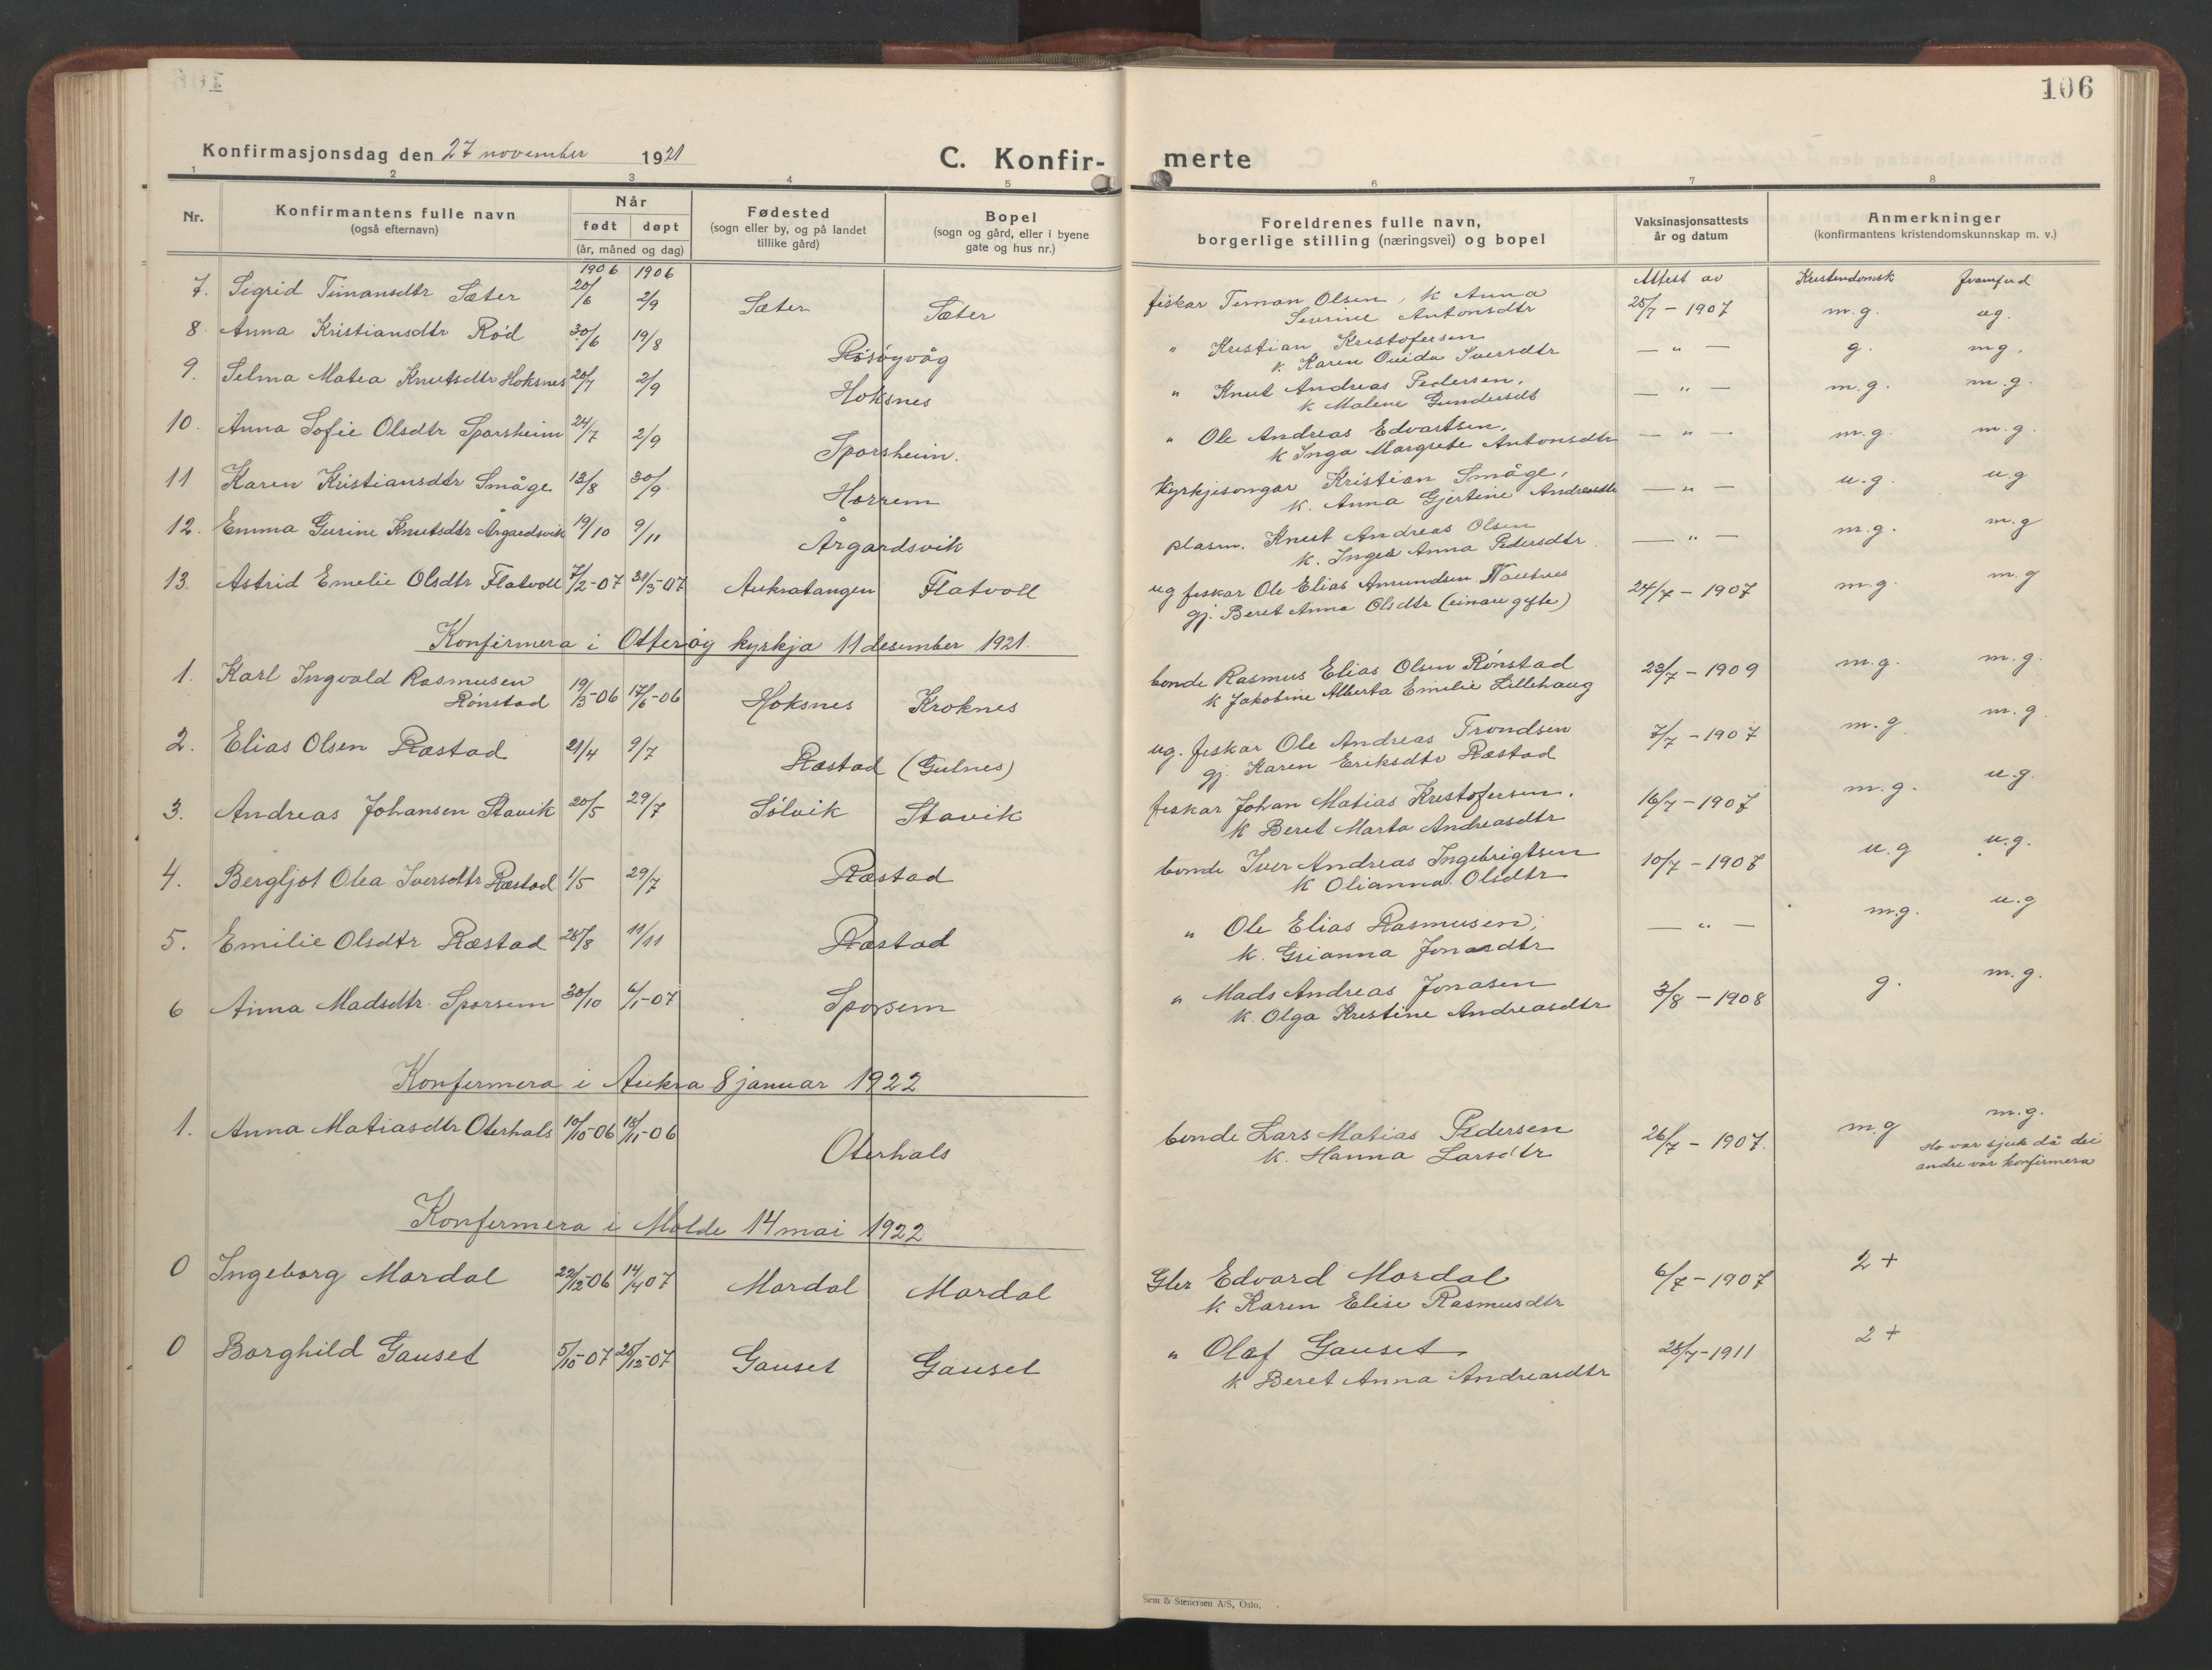 106
Konfirmasjonsdag den 27 november 1921
C. Konfir-
merte
1 2 3 4 5 6 7 8
Nr.
Konfirmantens fulle navn
(også efternavn)
Når
født døpt
(år, måned og dag)
Fødested
(sogn eller by, og på landet
tillike gård)
Bopel
(sogn og gård, eller i byene
gate og hus nr.)
Foreldrenes fulle navn,
borgerlige stilling (næringsvei) og bopel
Vaksinasjonsattests
år og datum
Anmerkninger
(konfirmantens kristendomskunnskap m. v.)
1906 1906 Attest av Kristendomsk framferd
7. Sigrid Timansdtr Sæter 20/6 2/9 Sæter Sæter fiskar Timan Olsen, k Anna 25/7 - 1907 m.g. ug.
Severine Antonsdtr
8. Anna Kristiansdtr Rød 30/6 19/8 Risøyvåg " Kristian Kristofersen — " — g. mg.
k. Karen Ovida Iversdtr
9. Selma Matea Knutsdtr Hoksnes 20/7 2/9 Hoksnes " Knut Andreas Pedersen, — " — m.g. m.g.
k Malene Gundersdt
10. Anna Sofie Olsdtr Sporsheim 24/7 2/9 Sporsheim. " Ole Andreas Edvartsen, — " — m.g. m.g.
k Inga Margrete Antonsdtr
11 Karen Kristiansdtr Småge 13/8 30/9 Horrem Kyrkjesongar Kristian Småge, — " — u.g. u.g
k. Anna Gjertine Andreasdtr
12. Emma Gurine Knutsdtr Årgardsvik 19/10 9/11 Årgardsvik plasm. Knut Andreas Olsen — " — m.g. m.g
k. Inger Anna Pedersdtr.
13. Astrid Emelie Olsdtr Flatvoll 7/2-07 31/3-07 Aukratangen Flatvoll ug fiskar Ole Elias Amundsen Nautnes 24/7 - 1907 m.g. m.g
gj. Beret Anna Olsdtr (einau gifte)
Konfirmera i Otterøy kyrkja 11 desember 1921.
1. Karl Ingvald Rasmusen bonde Rasmus Elias Olsen Rønstad 23/7 - 1909 m.g. m.g.
Rønstad 19/3-06 17/6-06 Hoksnes Kroknes k Jakobine Alberta Emilie Lillehaug
2. Elias Olsen Ræstad 21/4 9/7 Ræstad (Gulnes) ug. fiskar Ole Andreas Trondsen 7/7 - 1907 m.g m.g.
gj. Karen Eriksdtr Ræstad
3. Andreas Johansen Stavik 20/5 29/7 Sølvik Stavik fiskar Johan Matias Kristofersen, 16/7 - 1907 m.g. u.g.
k Beret Marta Andreasdtr
4. Bergljot Olea Iversdtr Ræstad 1/5 29/7 Ræstad bonde Iver Andreas Ingebrigtsen 10/7 - 1908 u.g u.g.
k Olianna Olsdtr
5. Emilie Olsdtr Ræstad 28/8 11/11 Ræstad " Ole Elias Rasmusen, — " — m.g. u.g
k. Grianna Jonasdtr
6 Anna Madsdtr. Sporsem 30/10 6/1-07 Sporsem " Mads Andreas Jonasen 3/8 - 1908 g. m.g.
k. Olga Kristine Andreasdtr
Konfermera i Aukra 8 januar 1922
1. Anna Matiasdtr Oterhals 10/10-06 18/11-06 Oterhals bonde Lars Matias Pedersen 26/7 - 1907. m.g m.g.
k. Hanna Larsdtr
Ho var sjuk då dei
andre var konfirmera
Konfermera i Molde 14 mai 1922
0 Ingeborg Mordal 22/12-06 14/4 07 Mordal Mordal Gbr Edvard Mordal 6/7 - 1907 2 +
k Karen Elise Rasmusdtr
0 Borghild Gauset 5/10-07 25/12-07 Gauset Gauset " Olaf Gauset 28/7-1911 2 +
k Beret Anna Andreasdtr
Sem & Stenersen A/S, Oslo.